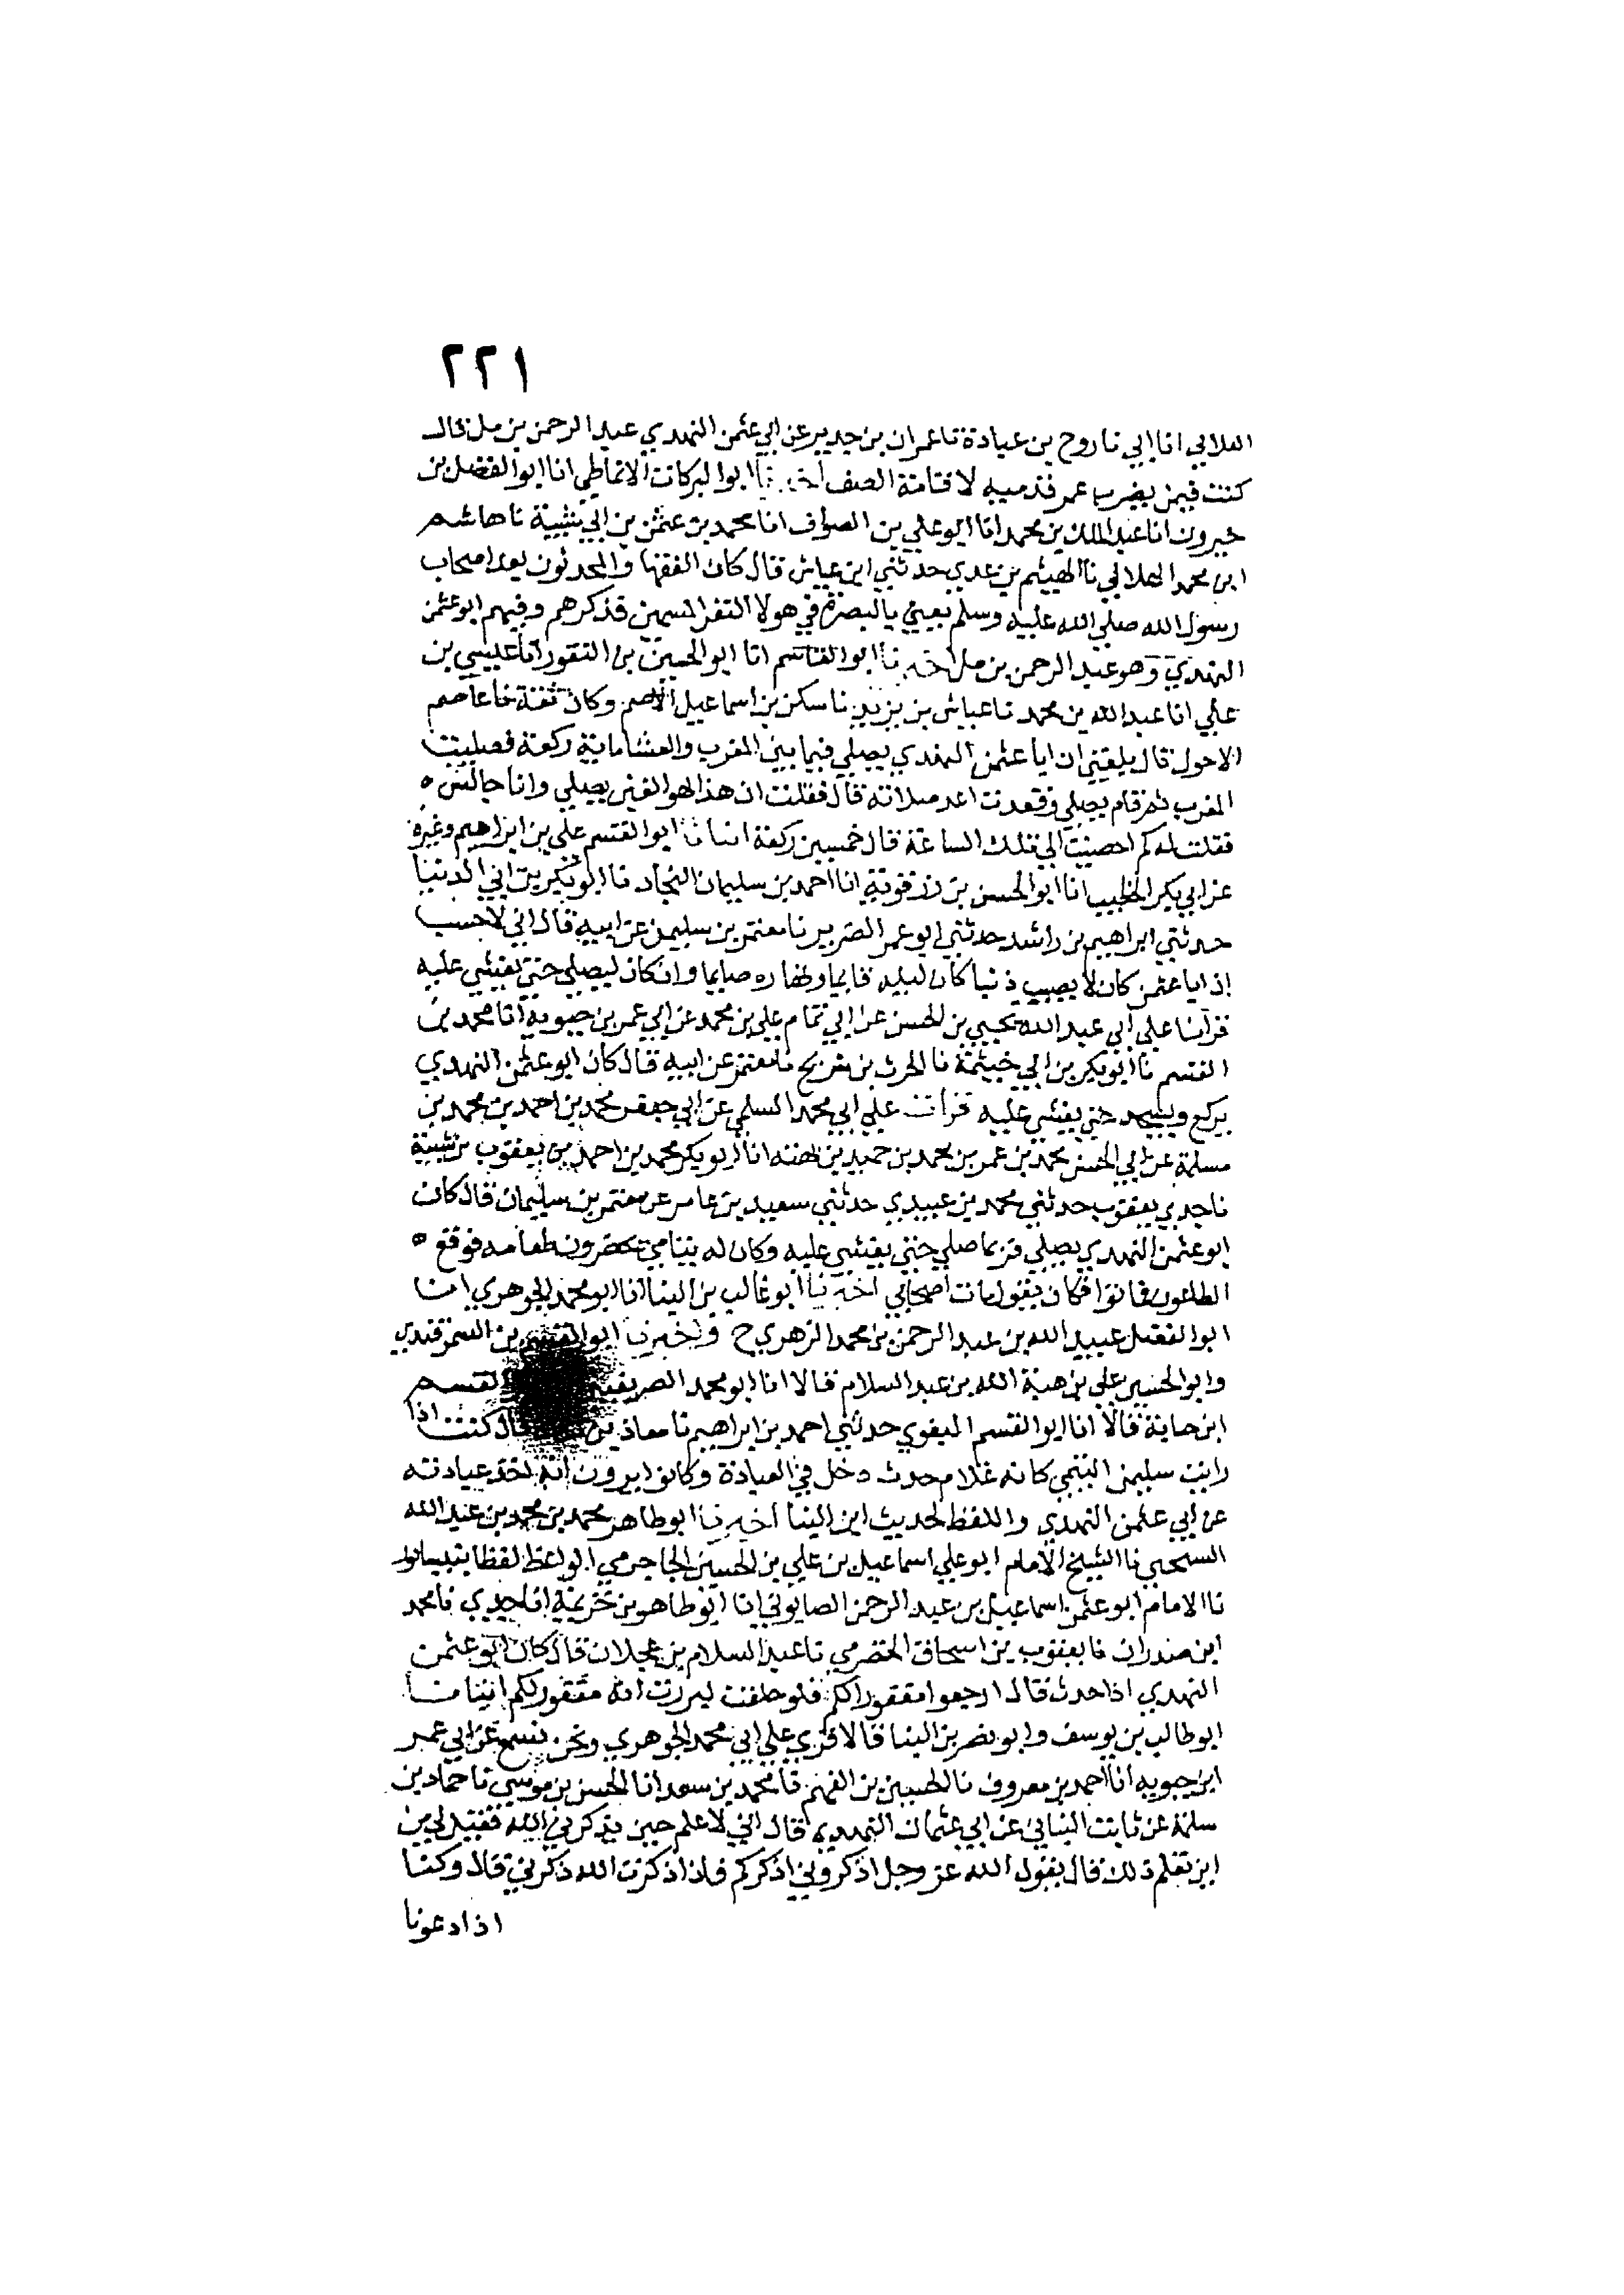 ٢٢١
العلابي انا ابي نا روح بن عبادة نا عمران بن حدير عن ابي عثمن النهدي عبد الرحمن بن مل قال
كنت فيمن يضرب عمر قدميه لاقامة الصف اخبرنا ابو البركات الانماطي انا ابو الفضل بن
خيرون انا عبد الملك بن محمد انا ابو علي بن الصواف انا محمد بن عثمن بن ابي شيبة نا هاشم
ابن محمد الهلالي نا الهيثم بن عدي حدثني ابن عياش قال كان الفقها والمحدثون بعد اصحاب
رسول الله صلي الله عليه وسلم يعني بالبصرة في هولا النفر المسمين فذكرهم وفيهم ابو عثمن
النهدي وهو عبد الرحمن بن مل اخبرنا ابو القاسم انا ابو الحسين بن النقور انا عيسي بن
علي انا عبد الله بن محمد نا عباس بن يزيد نا سكن بن اسماعيل الاصم وكان ثقة نا عاصم
الاحول قال بلغني ان ابا عثمن النهدي يصلي فيما بين المغرب والعشا ماية ركعة فصليت
المغرب ثم قام يصلي وقعدت اعد صلاته قال فقلت ان هذا لهو الغبن يصلي وانا جالس ه
فقلت له كم احصيت الي تلك الساعة قال خمسين ركعة انبانا ابو القسم علي بن ابراهيم وغيره
عن ابي بكر الخطيب انا ابو الحسن بن رزقوية انا احمد بن سليمان النجاد نا ابو بكر بن ابي الدنيا
حدثني ابراهيم بن راشد حدثني ابو عمر الضرير نا معتمر بن سليمن عن ابيه قال اني لاحسب
ان ابا عثمن كان لا يصيب ذنبا كان ليله قايما ونهاره صايما وان كان ليصلي حتي يغشي عليه
قرانا علي ابي عبد الله يحيي بن الحسن عن ابي تمام علي بن محمد عن ابي عمر بن حيويه انا محمد بن
القسم نا ابو بكر بن ابي خيثمة نا الحرث بن سريج نا معتمر عن ابيه قال كان ابو عثمن النهدي
يركع ويسجد حتي يغشي عليه قرات علي ابي محمد السلمي عن ابي جعفر محمد بن احمد بن محمد بن
مسلمة عن ابي الحسن محمد بن عمر بن محمد بن حميد بن بهته انا ابو بكر محمد بن احمد بن يعقوب بن شيبة
نا جدي يعقوب حدثني محمد بن عبيدي حدثني سعيد بن عامر عن معتمر بن سليمان قال كان
ابو عثمن النهدي يصلي فربما صلي حتي يغشي عليه وكان له يتامي يحضرون طعامه فوقع ه
الطاعون فماتوا فكان يقول مات اصحابي اخبرنا ابو غالب بن البنا انا ابو محمد الجوهري انا
ابو الفضل عبيد الله بن عبد الرحمن بن محمد الزهري ح واخبرنا ابو القسم بن السمرقندي
وابو الحسين علي بن هبة الله بن عبد السلام قالا انا ابو محمد الصريفيني القسم
ابن حبابة قالا انا ابو القسم البغوي حدثني احمد بن ابراهيم نا معاذ بن قال كنت اذا
رايت سليمن التيمي كانه غلام حدث دخل في العبادة وكانوا يرون انه اخذ عبادته
عن ابي عثمن النهدي واللفظ لحديث ابن البنا اخبرنا ابو طاهر محمد بن محمد بن عبد الله
السنجي نا الشيخ الامام ابو علي اسماعيل بن علي بن الحسين الجاجرمي الواعظ لفظا بنيسابور
نا الامام ابو عثمن اسماعيل بن عبد الرحمن الصابوني انا ابو طاهر بن خزيمة انا جدي نا محمد
ابن صدران نا يعقوب بن اسحاق الحضرمي نا عبد السلام بن عجلان قال كان ابو عثمن
النهدي اذا حدث قال ارجعوا مغفورا لكم فلو حلفت لبررت انه مغفور لكم انبانا
ابو طالب بن يوسف وابو نصر بن البنا قالا قري علي ابي محمد الجوهري ونحن نسمع عن ابي عمر
ابن حيويه انا احمد بن معروف نا الحسين بن الفهم نا محمد بن سعد انا الحسن بن موسي نا حماد بن
سلمة عن ثابت البناني عن ابي عثمان النهدي قال اني لاعلم حين يذكرني الله فقيل له من
اين تعلم ذلك قال يقول الله عز وجل اذكروني اذكركم فاذا ذكرت الله ذكرني قال وكنا
اذا دعونا